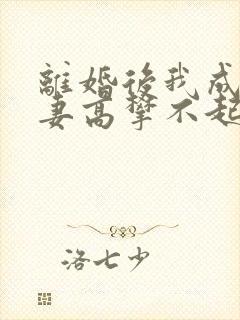 離婚後我成
妻高攀不起
洛七少